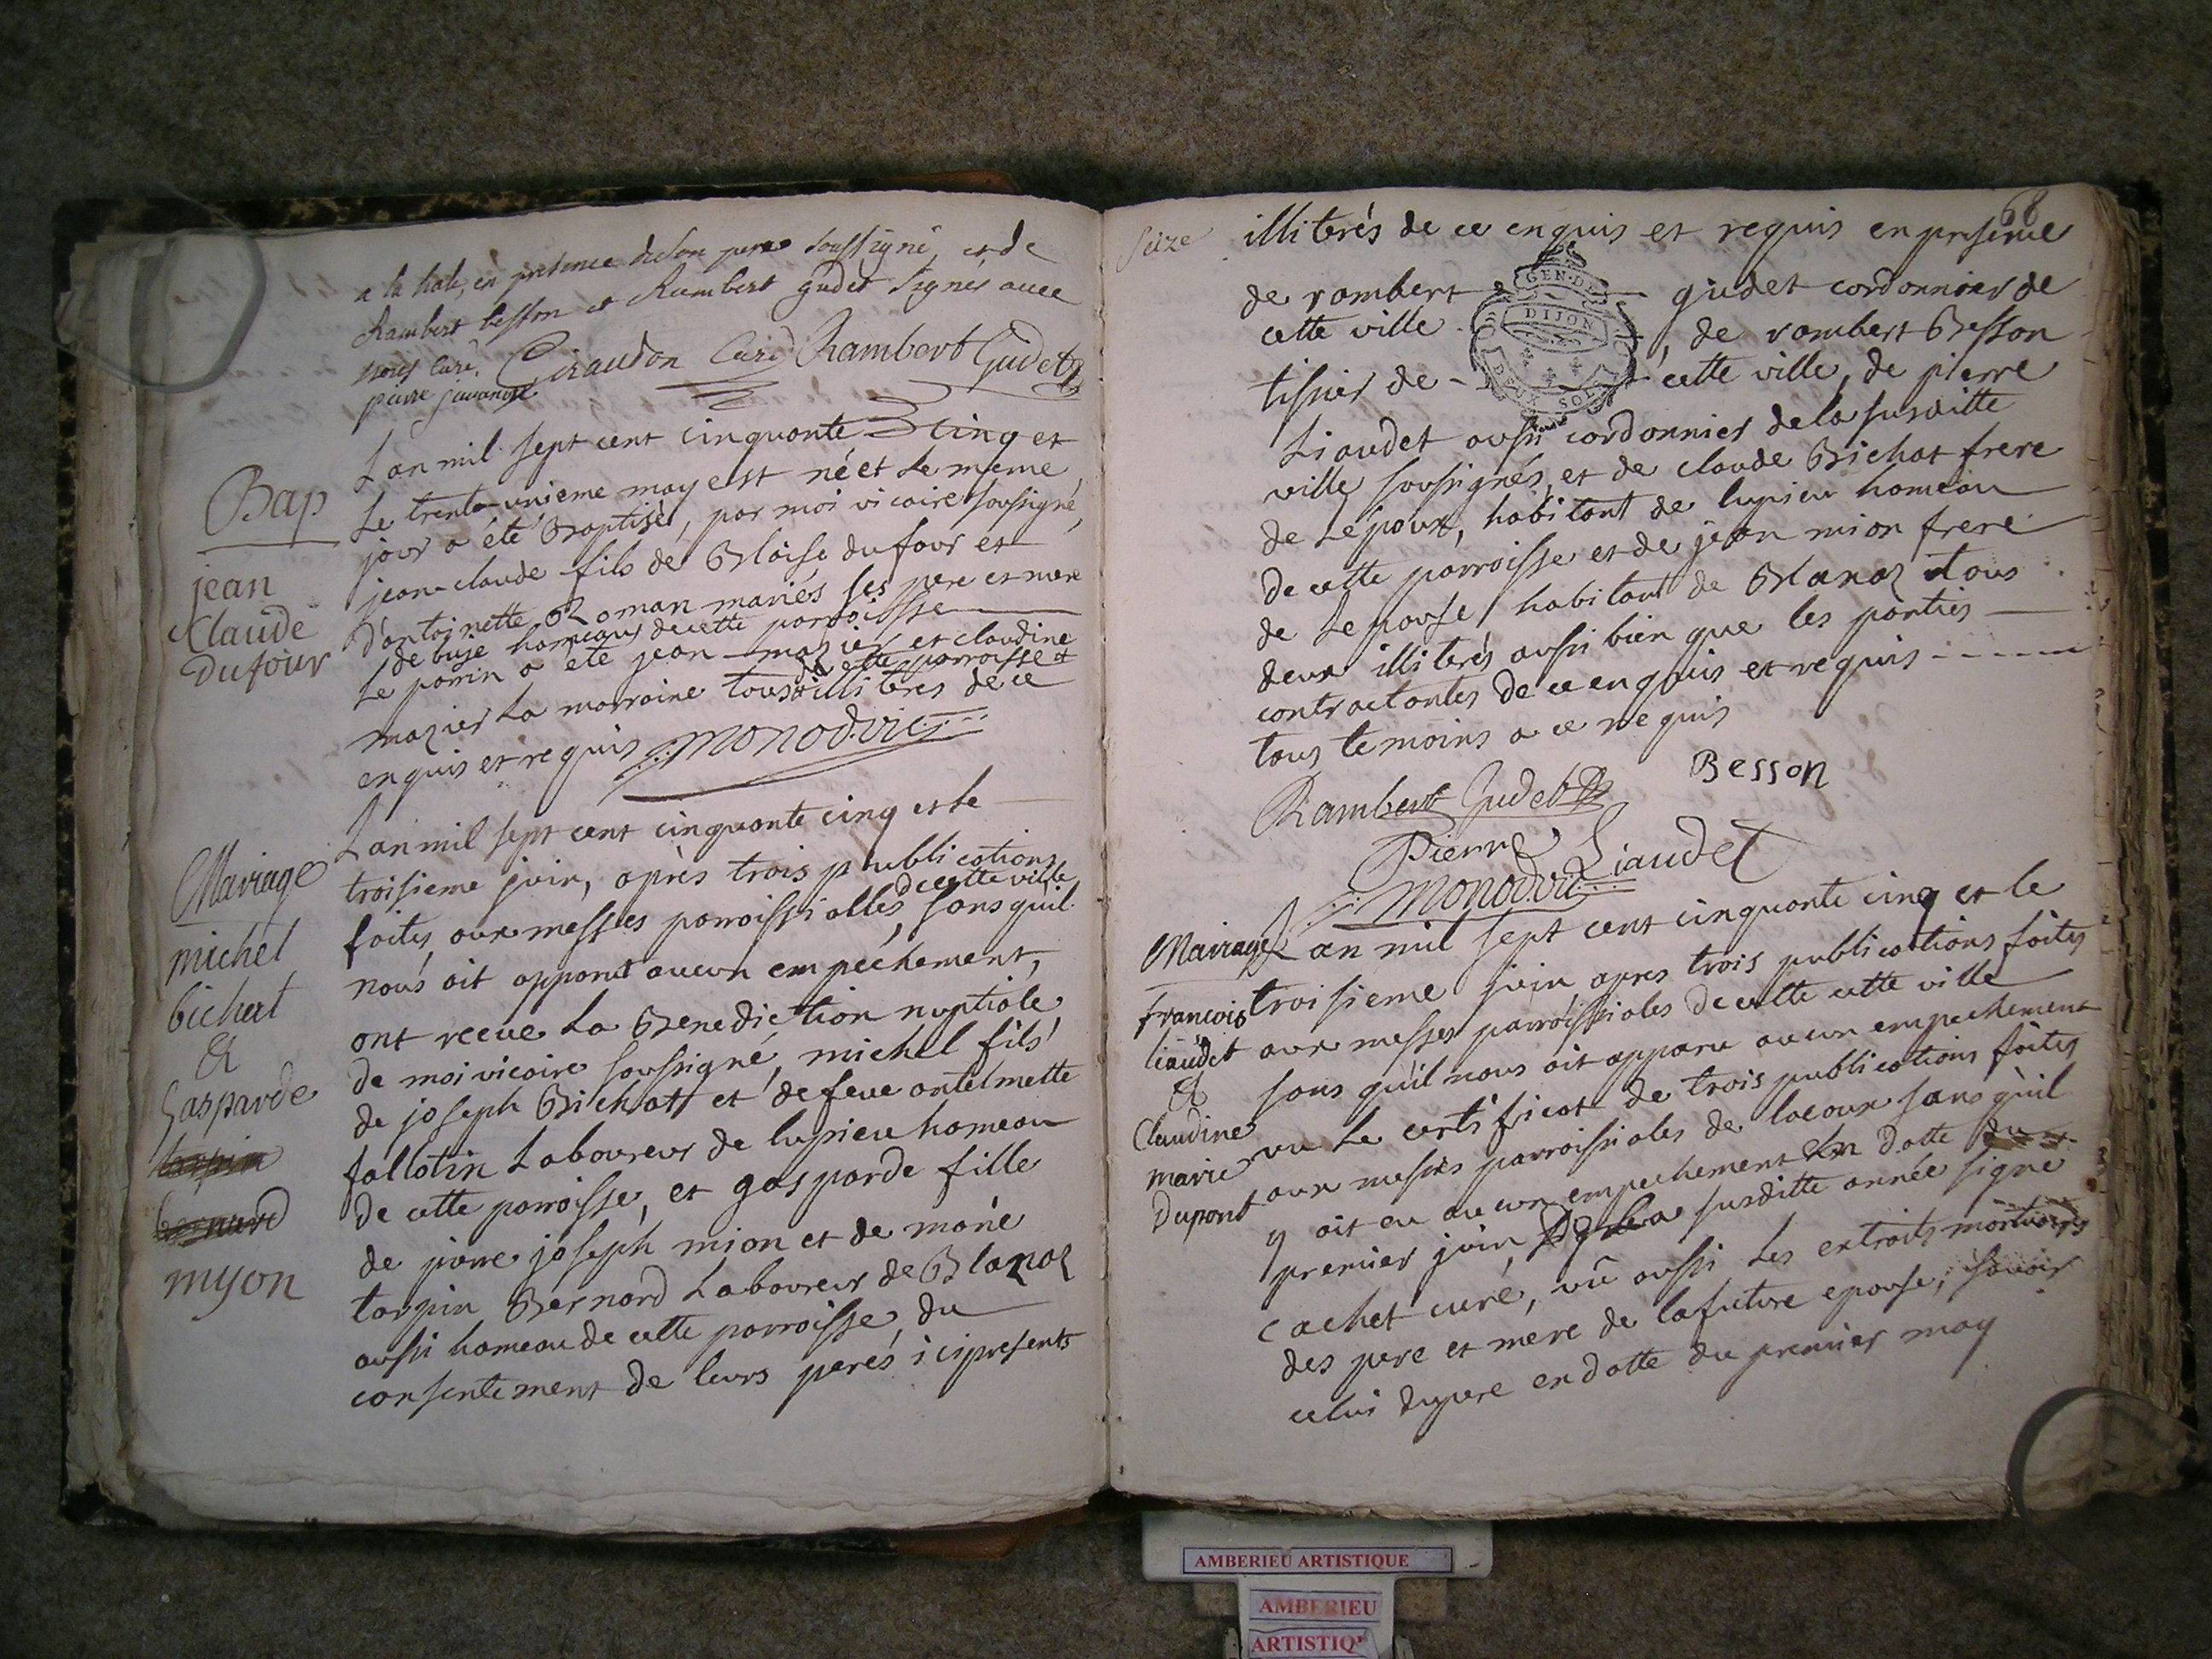 a la hale, en presence de son pere soussigné, et de
Rambert besson et Rambert gudet signés avec
nous curé. Giraudon Curé Rambert Gudet
pierre
L'an mil sept cent cinquante cinq et
Bap
Le trente-unieme may est né et le meme
jour a été Baptisé, par moi vicaire soussigné,
jean
Claude
dufour
jean-claude fils de Blaise dufour et
d'antoinette Roman mariés ses pere et mere
de buje hameaux de cette parroisse
Le parrin a été jean mazier et claudine
mazier La marraine tous de cette parroisse et illiterés de ce
enquis et requis monod vic
L'an mil sept cent cinquante cinq et le
Mariage
michel
bichat
&
Gasparde
tarpin
bernard
myon
troisieme juin, après trois publications
faites aux messes parroissialles de cette ville, sans quil
nous ait apparut aucun empechement,
ont recue La Benediction nuptiale
de moi vicaire soussigné, michel fils
de joseph Bichat et de feue antelmette
fallotin Laboureur de lupieu hameau
de cette parroisse, et gasparde fille
de pierre joseph mion et de marie
tarpin Bernard Laboureur de Blanaz
aussi hameau de cette parroisse, du
consentement de leurs perés ici presents
68
Seize
illiterés de ce enquis et requis en presence
de rambert gudet cordonnier de
cette ville, de rambert Besson
tissier de cette ville, de pierre
Liaudet aussi cordonnier de la susditte
ville soussignés, et de claude Bichat frere
de L'epoux, habitant de lupieu hameau
de cette parroisse et de jean mion frere
de Lepouse habitant de Blanaz tous
deux illiterés aussi bien que les parties
contractantes de ce enquis et requis
tous temoins a ce requis
GEN. DE
DIJON
DEUX SOLS
Rambert Gudet Besson
Pierre Liaudet
monod vic
Mariage
francois
liaudet
&
Claudine
marie
dupont
L'an mil sept cent cinquante cinq et le
troisieme juin apres trois publications faites
aux messes parroissiales de cette cette ville
sans qu'il nous ait apparu aucun empechement
vu Le certificat de trois publications faites
aux messes parroissiales de lacoux sans qu'il
y ait eu aucun empechement en datte du
premier juin de la susditte année signé
cachet curé, vû aussi Les extraits mortuaires
des pere et mere de la future epouse, savoir
celui du pere en datte du premier may
AMBERIEU ARTISTIQUE
AMBERIEU
ARTISTIQ